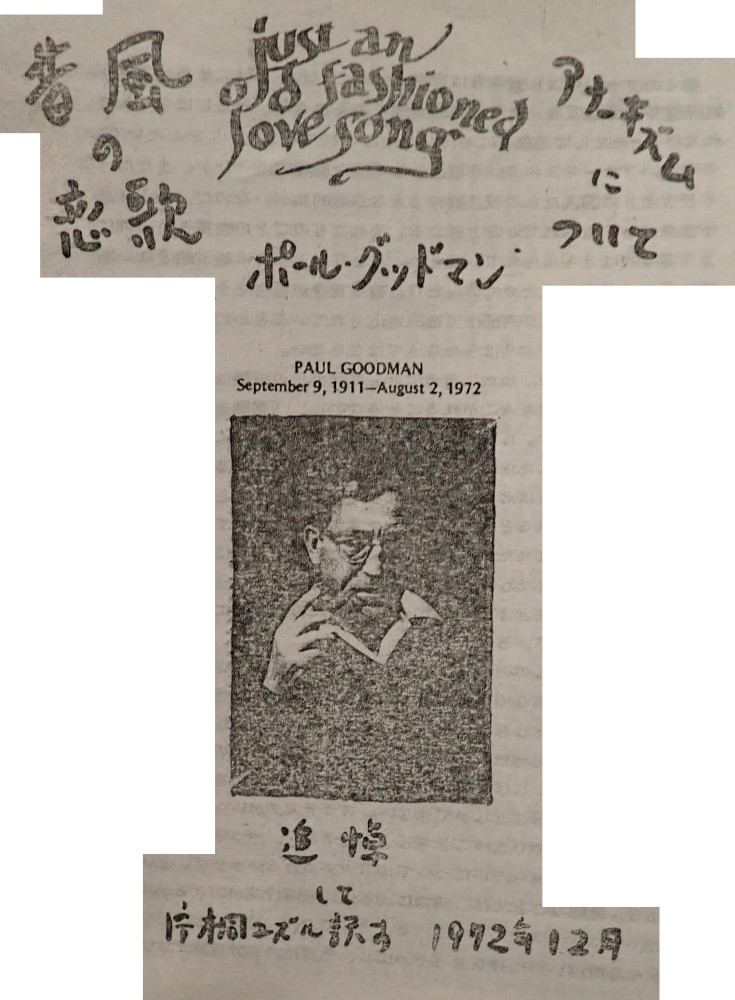 just an
old fashioned
love song
昔風
の
恋歌
アナーキズム
に
ついて
ポール・グッドマン
PAUL GOODMAN
September 9, 1911—August 2, 1972
追悼
して
片桐ユズル訳す 1972年12月